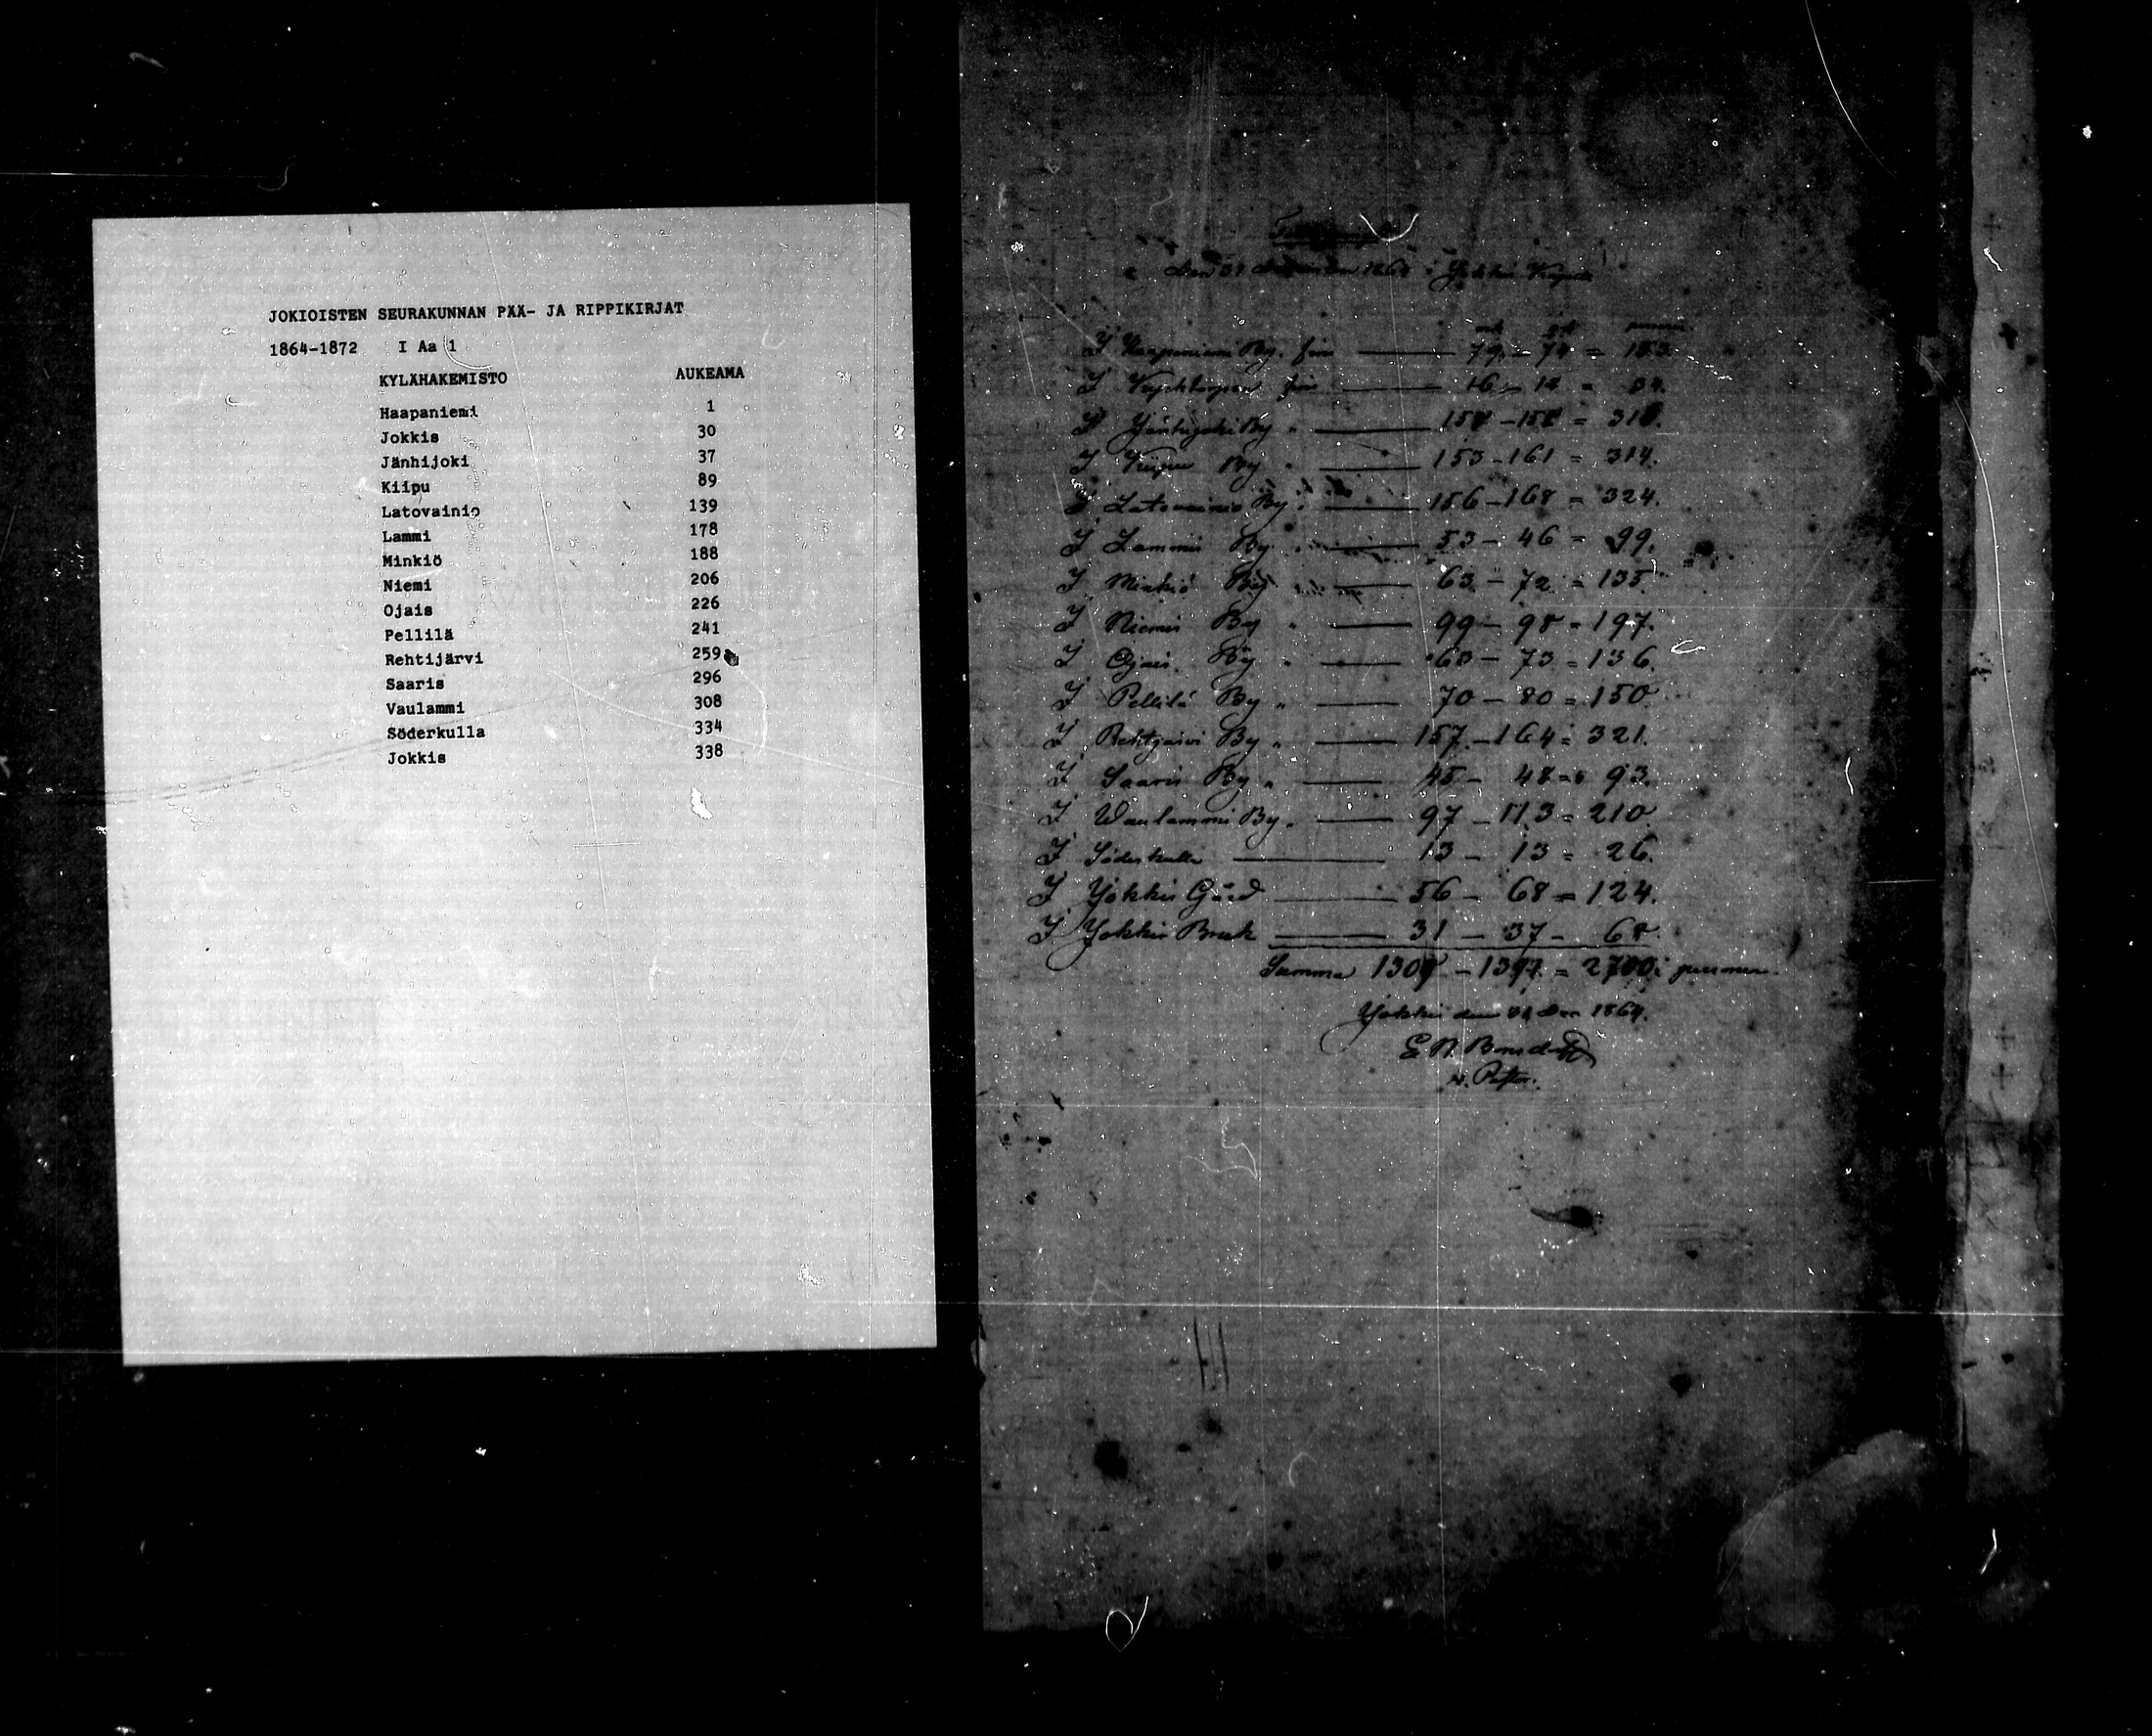 JOKIOISTEN SEURAKUNNAN PÄÄ- JA RIPPIKIRJAT
1864-1872 I Aa 1
KYLÄHAKEMISTO AUKEAMA
Haapaniemi 1
Jokkis 30
Jänhijoki 37
Kiipu 89
Latovainio 139
Lammi 178
Minkiö 188
Niemi 206
Ojais 226
Pellilä 241
Rehtijärvi 259
Saaris 296
Vaulammi 308
Söderkulla 334
Jokkis 338
den 31 December 1864 i Jokkis
I Haapaniemi By. 79 - 74 = 153.
I 16 - 18 = 34.
I Jänhijoki By "
I Kiipu By " 153 - 161 = 314.
I Latovainio By " 156 - 168 = 324.
I Lammi By " 53 - 46 = 99.
I Minkiö By 63 - 72 = 135.
I Niemi By " 99 - 98 = 197.
I Ojais By " 63 - 73 = 136.
I Pellilä By " 70 - 80 = 150.
I Rehtijärvi By " 157 - 164 = 321.
I Saaris By " 45 - 48 = 93.
I Waulammi By " 97 - 113 = 210.
I Söderkulla 13 - 13 = 26.
I Jokkis Gård 56 - 68 = 124.
I Jokkis Bruk 31 - 37 - 68.
Summa
Jokkis den 31 Dec 1864.